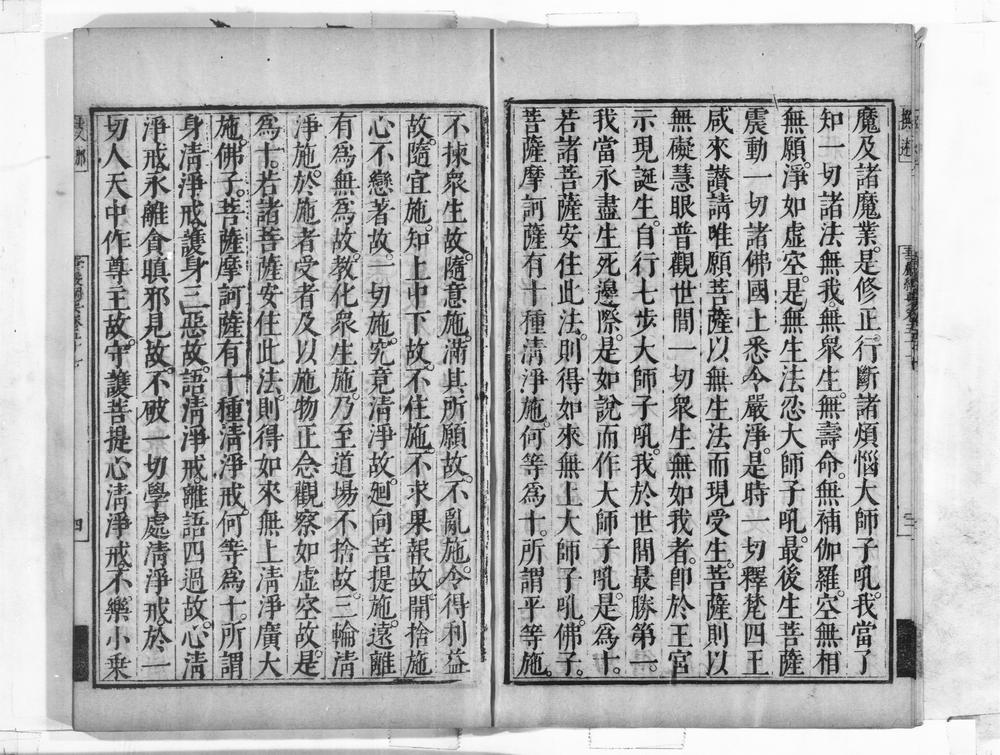 魔及諸魔業是修正行斷諸煩惱大師子吼。我當了
知一切諸法無我。無衆生。無壽命。無補伽羅。空無相
無願。淨如虚空。是無生法忍大師子吼。最後生菩薩
震動一切諸佛國土悉令嚴淨。是時一切釋梵四王
咸來讃請唯願菩薩以無生法而現受生。菩薩則以
無礙慧眼普觀世間一切衆生無如我者。卽於王宮
示現誕生。自行七步大師子吼。我於世間最勝第一。
我當永盡生死邊際。是如說而作大師子吼。是為十。
若諸菩薩安住此法。則得如來無上大師子吼。佛子。
菩薩摩訶薩有十種清淨施。何等爲十。所謂平等施。
不揀衆生故。隨意施。滿其所願故。不亂施。令得利益
故。隨宜施。知上中下故。不住施。不求果報故。開捨施
心不戀著故。一切施。究竟清淨故。迴向菩提施。遠離
有爲無爲故。教化衆生施。乃至道場不捨故。三輪清
淨施。於施者受者及以施物正念觀察如虚空故。是
爲十。若諸菩薩安住此法。則得如來無上清淨廣大
施。佛子。菩薩摩訶薩有十種清淨戒。何等爲十。所謂
身清淨戒。護身三惡故。語清淨戒。離語四過故。心清
淨戒。永離貪瞋邪見故。不破一切學處清淨戒。於一
切人天中作尊王故。守護菩提心清淨戒。不樂小乗
四